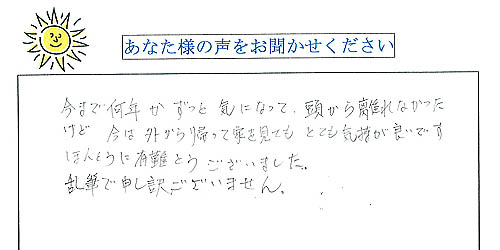 あなた様の声をお聞かせください
今まで何年か ずっと 気になって、頭から離れなかった
けど 今は 外から帰って家を見ても とても気持が良いです
ほんとうに有難とうございました。
乱筆で申し訳ございません。